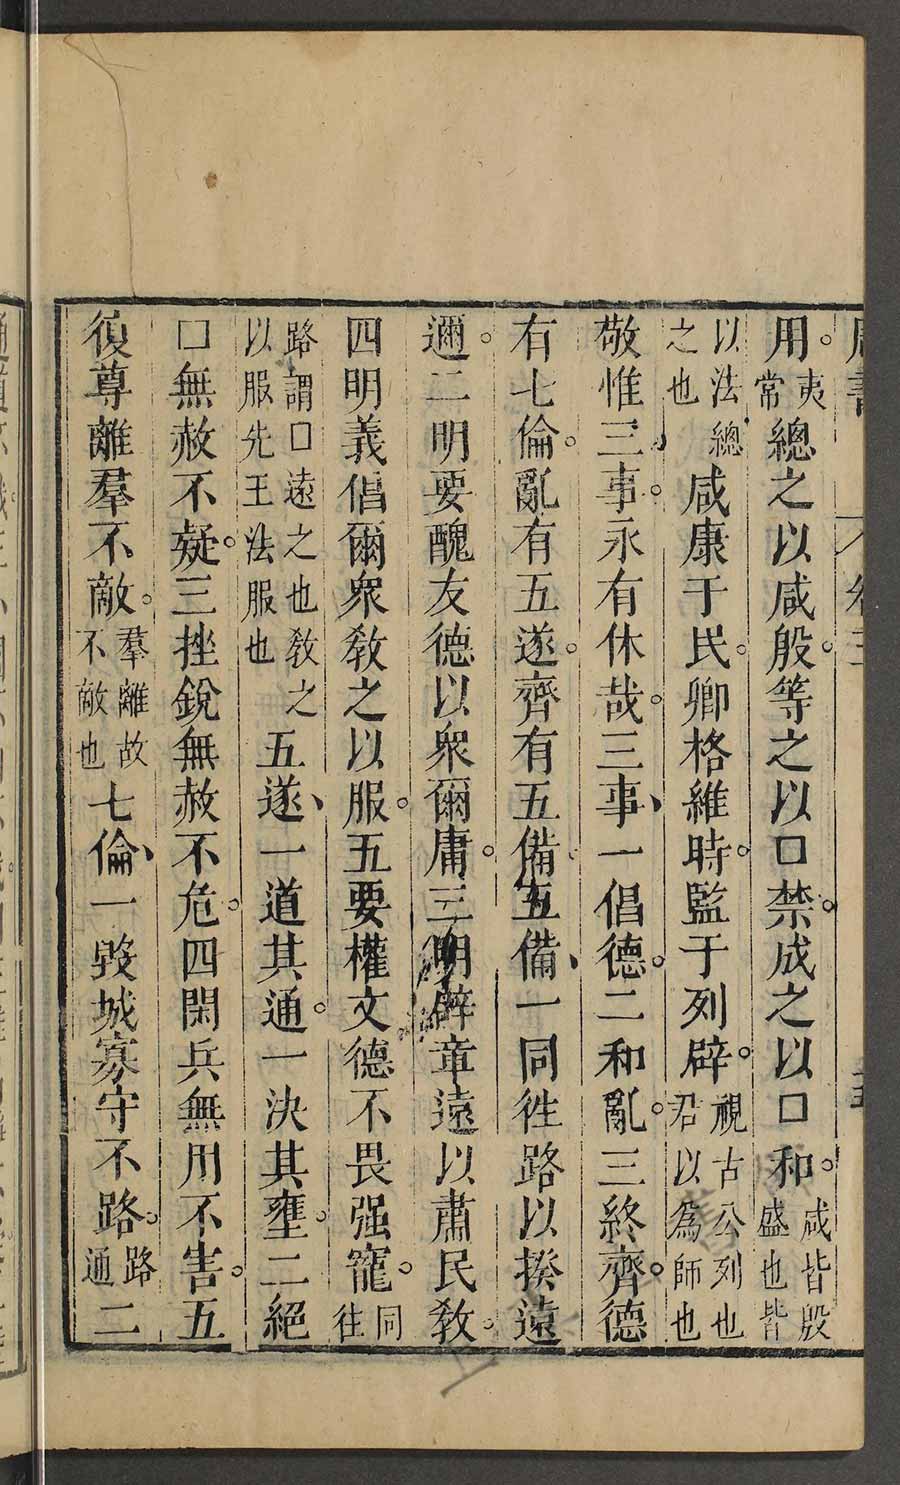 用。夷常總之以咸殷。等之以口禁。成之以口和。咸皆殷盛也皆
以法總之也咸康于民。卿格維時。監于列辟。視古公列也君以為師也
敬惟三事。永有休哉。三事、一倡德。二和亂。三終齊。德
有七倫。亂有五遂。齊有五備。五備、一同往路以揆遠
邇。二明要醜友德以眾爾庸。三明辟章遠以肅民教。
四明義倡爾眾教之以服。五要權文德不畏强寵。同往
路謂口遠之也教之以服先王法服也五遂、一道其通。一決其壅。二絕
口無赦不疑。三挫銳無赦不危。四閑兵無用不害。五
復尊離羣不敵。羣離故不敵也七倫、一毀城寡守不路。路通二